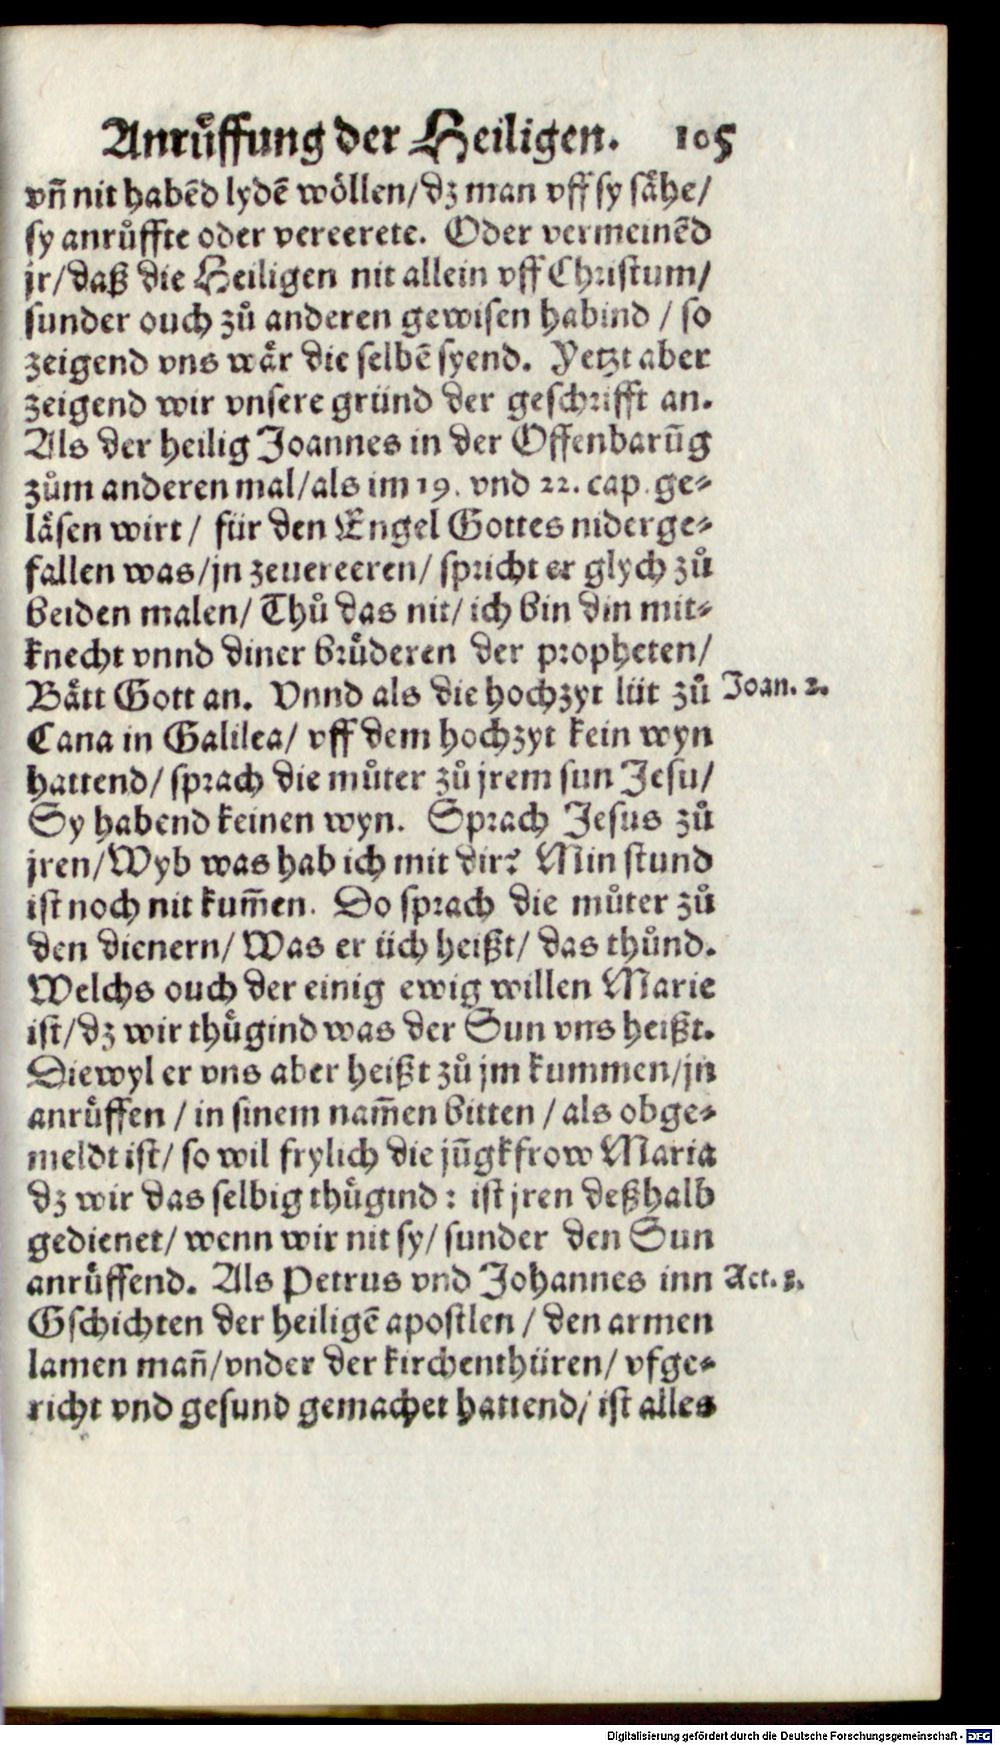 Anruͦffung der Heiligen. 105
vñ nit habẽd lydẽ woͤllen/dz man vff sy saͤhe/
sy anruͦffte oder vereerete. Oder vermeinẽd
jr/daß die Heiligen nit allein vff Christum/
sunder ouch zuͦ anderen gewisen habind / so
zeigend vns waͤr die selbẽ syend. Yetzt aber
zeigend wir vnsere gründ der geschrifft an.
Als der heilig Joannes in der Offenbarũg
zuͦm anderen mal/als im 19. vnd 22. cap. ge-
laͤsen wirt / für den Engel Gottes niderge-
fallen was/jn zeuereeren/ spricht er glych zuͦ
beiden malen/ Thuͦ das nit/ ich bin din mit-
knecht vnnd diner bruͤderen der propheten/
Baͤtt Gott an. Vnnd als die hochzyt lüt zuͦ Joan. 2.
Cana in Galilea/ vff dem hochzyt kein wyn
hattend/ sprach die muͦter zuͦ jrem sun Jesu/
Sy habend keinen wyn. Sprach Jesus zuͦ
jren/Wyb was hab ich mit dir? Min stund
ist noch nit kum̃en. Do sprach die muͦter zuͦ
den dienern/ Was er üch heißt/ das thuͦnd.
Welchs ouch der einig ewig willen Marie
ist/dz wir thuͤgind was der Sun vns heißt.
Diewyl er vns aber heißt zuͦ jm kummen/jn
anruͤffen / in sinem nam̃en bitten / als obge-
meldt ist/ so wil frylich die jũgkfrow Maria
dz wir das selbig thuͤgind : ist jren deßhalb
gedienet/ wenn wir nit sy/ sunder den Sun
anruͤffend. Als Petrus vnd Johannes inn Act. 3.
Gschichten der heiligẽ apostlen / den armen
lamen mañ/vnder der kirchenthüren/ vfge-
richt vnd gesund gemachet hattend/ ist alles
Digitalisierung gefördert durch die Deutsche Forschungsgemeinschaft - DFG